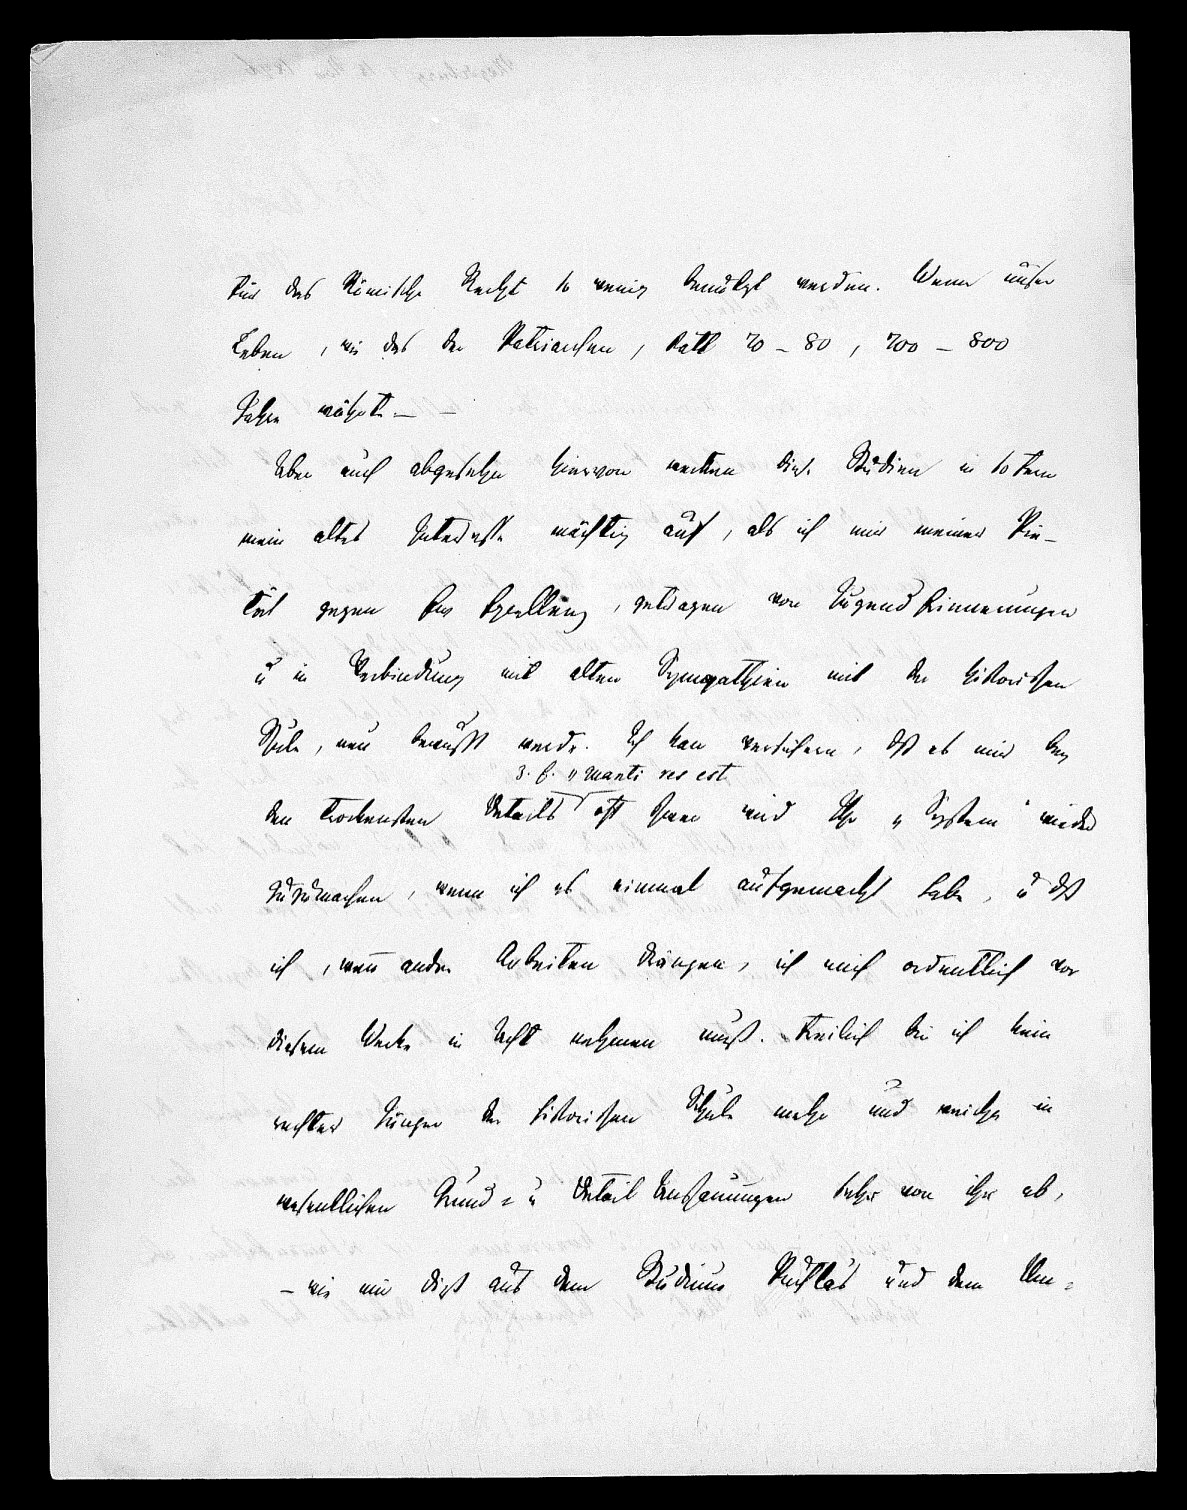 für das Römische Recht so wenig benutzt werden. Wenn unser
Leben, wie das der Patriarchen, statt 70 – 80, 700 – 800
Jahre währte – –
Aber auch abgesehen hiervon wecken diese Studien in so fern
mein altes Interesse mächtig auf, als ich mir meiner Pie-
tät gegen Ihre, getragen von Jugend Erinnerungen
u in Verbindung mit alten Sympathien mit der historischen
Schule, neu bewußt werde. Ich kan versichern, dß es mir bey
z. B. „manti res est
den trockensten Details oft schwer wird Ihr „System“ wieder
zuzumachen, wenn ich es einmal aufgemacht habe, u dß
ich, wen andre Arbeiten drängen, ich mich ordentlich vor
diesem Werke in Acht nehmen muß. Freilich bin ich kein
rechter Jünger der historischen Schule mehr und weiche in
wesentlichen Grund- u Detail Anschauungen sehr von ihr ab,
– wie mir dieß aus dem Studium Puchtas und dem Um-